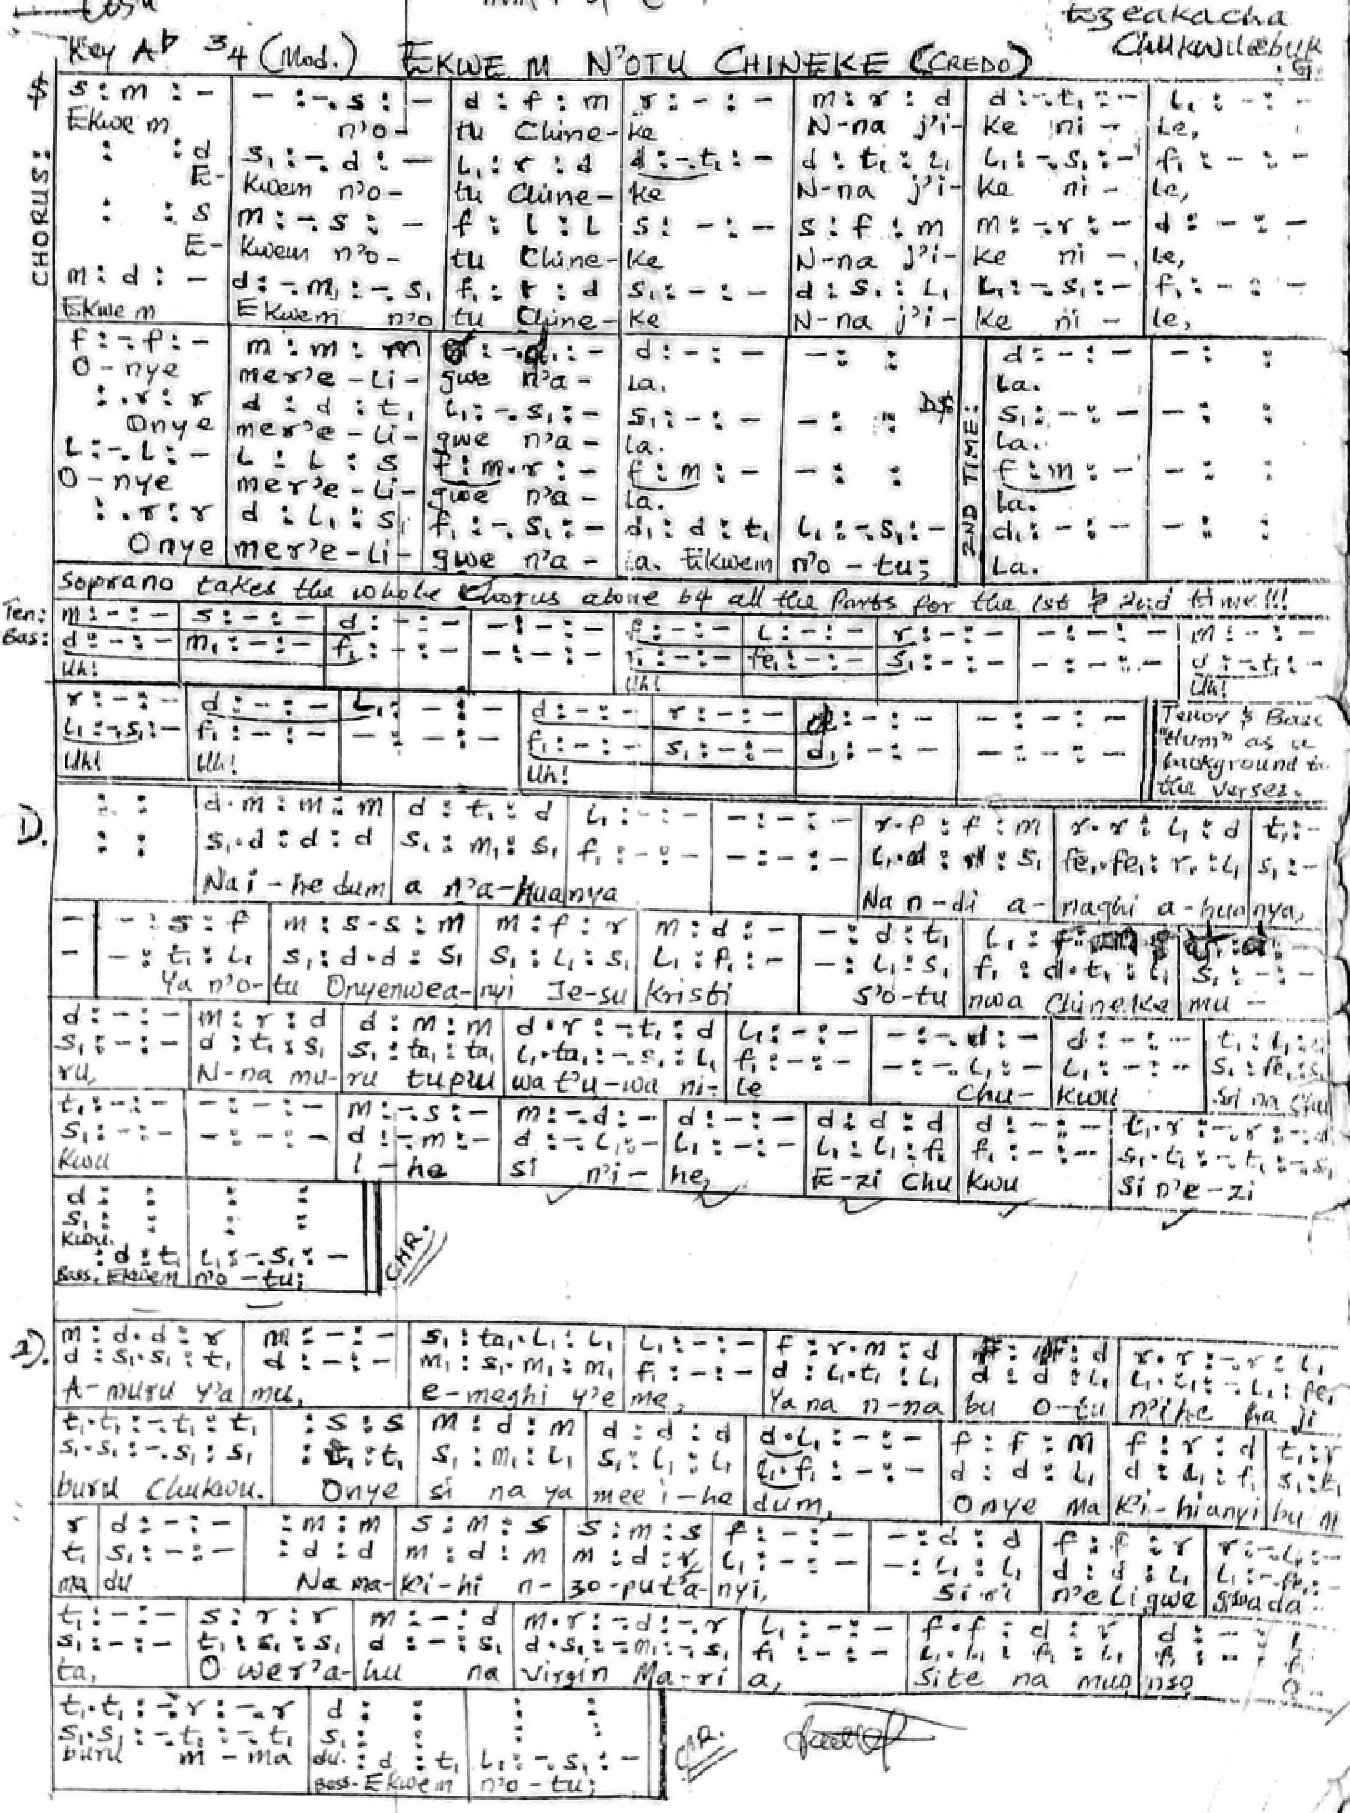 Key A♭ 3/4 (Mod.) EKWE M N'OTU CHINEKE (CREDO)
Chukwuebuk
CHORUS:
s : m : - | - : -. s : - | d : f : m | r : - : - | m : r : d | d : -. t₁ : - | l₁ : - : -
Ekwe m n'o- tu Chine- ke N-na j'i- ke ni - le,
: : d | s₁ : -. d : - | l₁ : r : d | d : -. t₁ : - | d : t₁ : l₁ | l₁ : -. s₁ : - | f₁ : - : -
E- kwem n'o- tu Chine- ke N-na j'i- ke ni - le,
: : s | m : -. s : - | f : l : l | s : - : - | s : f : m | m : -. r : - | d : - : -
E- kwem n'o- tu Chine- ke N-na j'i- ke ni -, le,
m : d : - | d : -. m₁ : -. s₁ | f₁ : r : d | s₁ : - : - | d : s₁ : l₁ | l₁ : -. s₁ : - | f₁ : - : -
Ekwe m Ekwem n'o tu Chine- ke N-na j'i- ke ni - le,
f : -. f : - | m : m : m | : - . : - | d : - : - | - : : | d : - : - | - : :
O - nye mer'e - li - gwe n'a - la. La.
: . r : r | d : d : t₁ | l₁ : -. s₁ : - | s₁ : - : - | - : : | s₁ : - : - | - : :
D$
2ND TIME:
Onye mer'e - li - gwe n'a - la. La.
l : -. l : - | l : l : s | f : m. r : - | f : m : - | - : : | f : m : - | - : :
O - nye mer'e - li - gwe n'a - la. La.
: . r : r | d : l₁ : s₁ | f₁ : -. s₁ : - | d₁ : d : t₁ | l₁ : -. s₁ : - | d₁ : - : - | - : :
Onye mer'e - li - gwe n'a - la. Ekwem n'o - tu; La.
Soprano takes the whole Chorus above b4 all the Parts for the 1st & 2nd time!!!
Ten: m : - : - | s : - : - | d : - : - | - : - : - | f : - : - | l : - : - | r : - : - | - : - : - | m : - : -
Bas: d : - : - | m₁ : - : - | f₁ : - : - | - : - : - | : - : - | fe₁ : - : - | s₁ : - : - | - : - : - | d : -. t₁ : -
Uh! Uh! Uh!
r : - : - | d : - : - | l₁ : - : - | d : - : - | r : - : - | d : - : - | - : - : -
l₁ : -. s₁ : - | f₁ : - : - | - : - : - | f₁ : - : - | s₁ : - : - | d₁ : - : - | - : - : -
Uh! Uh! Uh!
Tenor & Bass
"Hum" as a
background to
the verses.
1).
: : | d. m : m : m | d : t₁ : d | l₁ : - : - | - : - : - | r. f : f : m | r. r : l₁ : d | t₁ : -
: : | s₁. d : d : d | s₁ : m₁ : s₁ | f₁ : - : - | - : - : - | l₁. : : s₁ | fe₁. fe₁ : r₁ : l₁ | s₁ : -
Na i - he dum a n'a-huanya Na n - di a - naghi a-huanya,
- | - : s : f | m : s. s : m | m : f : r | m : d : - | - : d : t₁ | l₁ :
- | - : t₁ : l₁ | s₁ : d. d : s₁ | s₁ : l₁ : s₁ | l₁ : f₁ : - | - : l₁ : s₁ | f₁ : d. t₁ : l₁ | s₁ : - : -
Ya n'o-tu Onyenwea-nyi Je-su Kristi s'o-tu nwa Chineke mu -
d : - : - | m : r : d | d : m : m | d. r : -. t₁ : d | l₁ : - : - | - : -. d : - | d : - : - | t₁ : l₁ :
s₁ : - : - | d : t₁ : s₁ | s₁ : ta₁ : ta₁ | l₁. ta₁ : -. s₁ : l₁ | f₁ : - : - | - : -. l₁ : - | l₁ : - : - | s₁ : fe₁ : s₁
ru, N-na mu-ru tupu uwa t'u-wa ni-le Chu- kwu si na Chu
t₁ : - : - | - : - : - | m : -. s : - | m : -. d : - | d : - : - | d : d : d | d : - : - | t₁. r : -. r : -. d
s₁ : - : - | - : - : - | d : -. m : - | d : -. l₁ : - | l₁ : - : - | l₁ : l₁ : f₁ | f₁ : - : - | s₁. t₁ : -. t₁ : -. s₁
kwu i - he si n'i - he, E-zi Chu kwu si n'e-zi
d : : | : :
s₁ : : | : :
kwu.
: d : t₁ | l₁ : -. s₁ : -
Bass. Ekwem n'o - tu;
CHR.
2).
m : d. d : r | m : - : - | s₁ : ta₁. l₁ : l₁ | l₁ : - : - | f : r. m : d | : : d | r. r : -. r : l₁
d : s₁. s₁ : t₁ | d : - : - | m₁ : s₁. m₁ : m₁ | f₁ : - : - | d : l₁. t₁ : l₁ | d : d : l₁ | l₁. l₁ : -. l₁ : fe₁
A-muru y'a mu, e-meghi y'e me, Ya na n-na bu o-tu n'ihe ha ji
t₁. t₁ : -. t₁ : t₁ | : s : s | m : d : m | d : d : d | d. l₁ : - : - | f : f : m | f : r : d | t₁ : r
s₁. s₁ : -. s₁ : s₁ | : t₁ : t₁ | s₁ : m₁ : l₁ | s₁ : l₁ : l₁ | l₁. f₁ : - : - | d : d : l₁ | d : l₁ : f₁ | s₁ : t₁
buru Chukwu. Onye si na ya mee i-he dum, Onye ma k'i-hianyi bu m
r | d : - : - | : m : m | s : m : s | s : m : s | f : - : - | - : d : d | f : f : r | r : -. l₁ : -
t₁ | s₁ : - : - | : d : d | m : d : m | m : d : | l₁ : - : - | - : l₁ : l₁ | d : d : l₁ | l₁ : -. fe₁ : -
ma du Na ma- k'i-hi n- zo-put'a-nyi, si ri n'e Ligwe gbada
t₁ : - : - | s : r : r | m : - : d | m. r : -. d : -. r | l₁ : - : - | f. f : d : r | d : - :
s₁ : - : - | t₁ : s₁ : s₁ | d : - : s₁ | d. s₁ : -. m₁ : -. s₁ | f₁ : - : - | l₁. l₁ : f₁ : l₁ | f₁ : - :
ta, O wer'a-hu na Virgin Ma-ri a, Site na muo nso O
t₁. t₁ : -. r : -. r | d : : | : :
s₁. s₁ : -. t₁ : -. t₁ | s₁ : : | : :
buru m - ma du. : d : t₁ | l₁ : -. s₁ : -
Bass- Ekwem n'o - tu;
CHR.